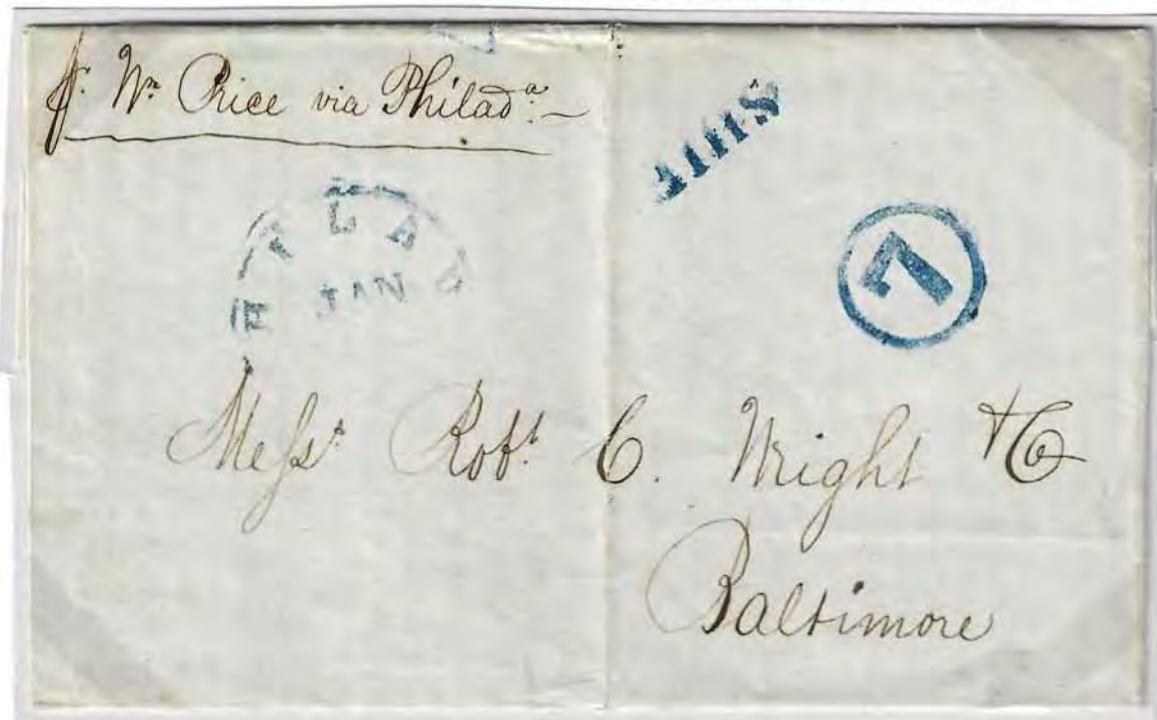 pr. Wm Price via Philada. —
JAN
7
Messrs Robt. C. Wright & Co
Baltimore